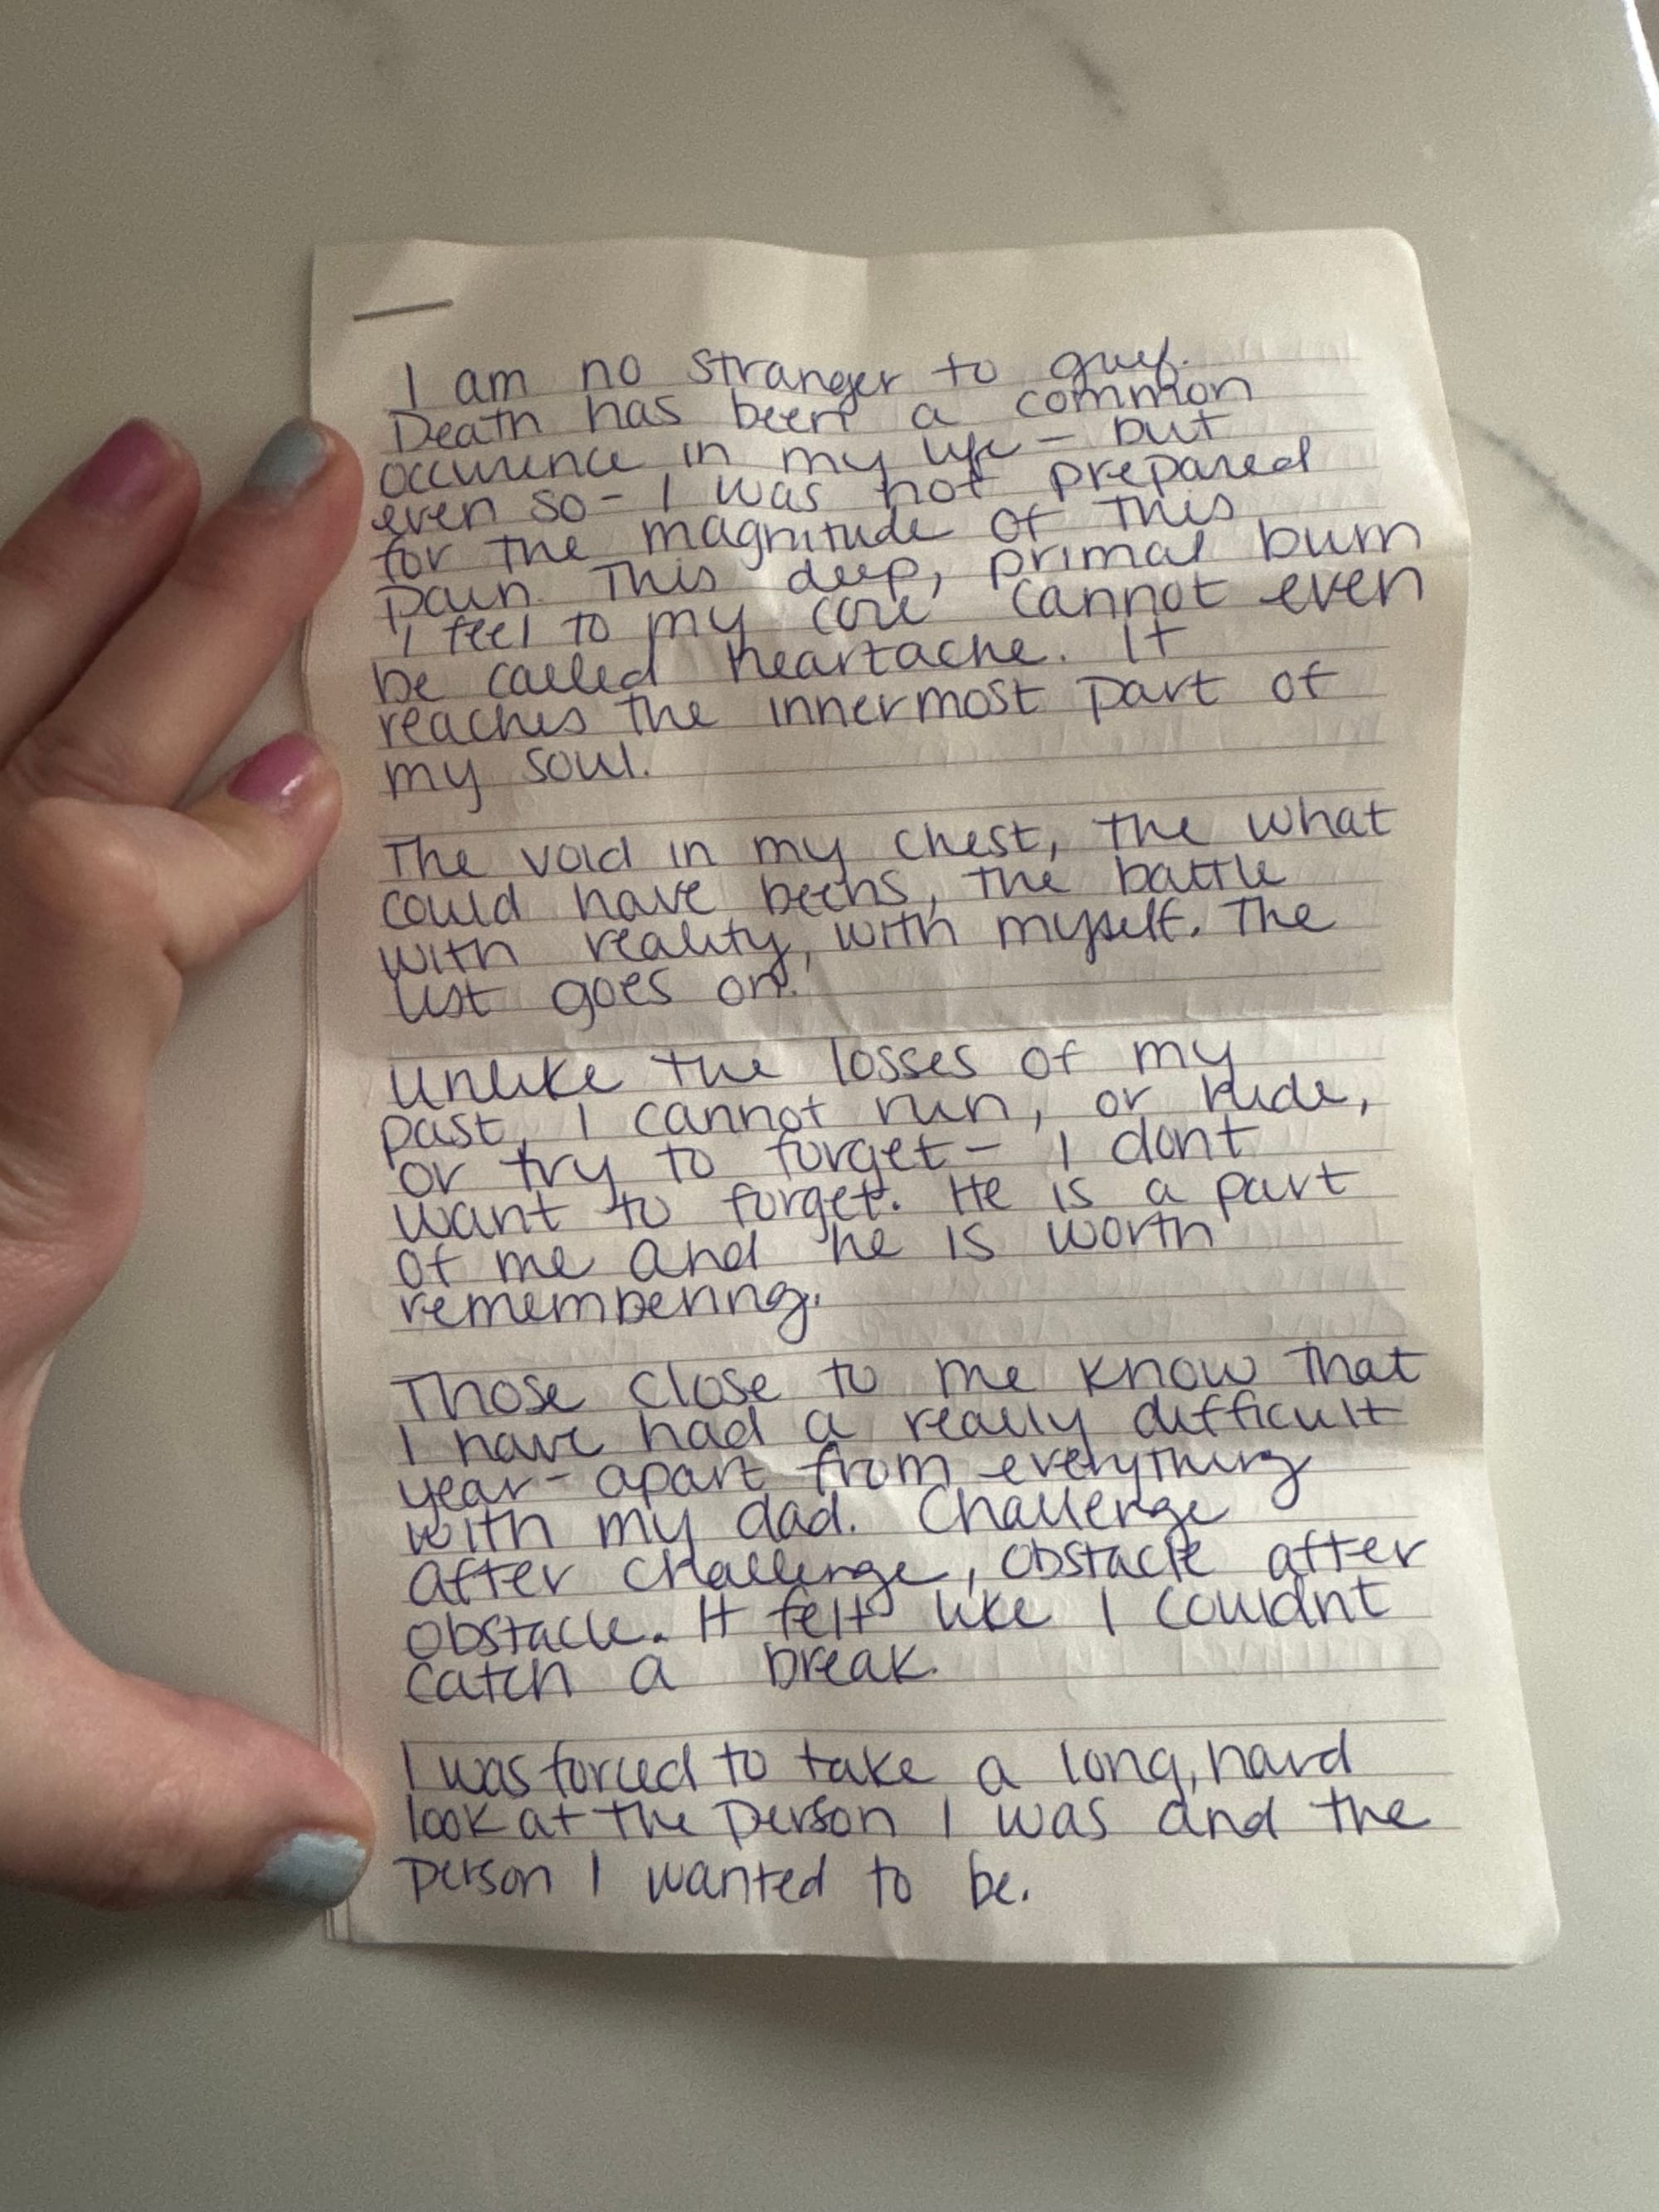 I am no stranger to grief.
Death has been a common
occurence in my life - but
even so - I was not prepared
for the magnitude of this
pain. This deep, primal burn
I feel to my core cannot even
be called heartache. It
reaches the innermost part of
my soul.
The void in my chest, the what
could have beens, the battle
with reality, with myself. The
list goes on.
Unlike the losses of my
past, I cannot run, or hide,
or try to forget - I dont
want to forget. He is a part
of me and he is worth
remembering.
Those close to me know that
I have had a really difficult
year - apart from everything
with my dad. Challenge
after challenge, obstacle after
obstacle. It felt like I couldnt
catch a break.
I was forced to take a long, hard
look at the person I was and the
person I wanted to be.